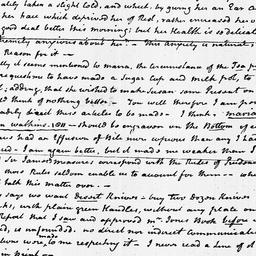 taken a slight Cold, and which, by giving her an Ear
her face which deprived her of Rest, rather increased her
good deal better this morning; but her Health is so delicate
extremely anxious about her. – This anxiety is natural
Reason for it –
seems mentioned to mama, the circumstance of the Tea
to have made a Sugar Cup and Milk pot, to
adding, that she wished to make Susan some Present on
think of nothing better – You will therefore I am
these articles to be made – I think, maria
watkins. 1811 – Should be engraven on the Bottom of
had an Effusion of Bile more copious than any I
– I am again better, but it made me weaker than I
Sir James's measures correspond with the Rules of Prudence
those Rules seldom enable us to account for them – wh
talk this matter over. –
says we want Desert Knives – buy two Dozen Knives
with plain green Handles, without any plate on
that I saw and approved Mr. Jones Book before
is unfounded. no direct nor indirect Communication
were, to me respecting it – I never read a Line of it
in Print –